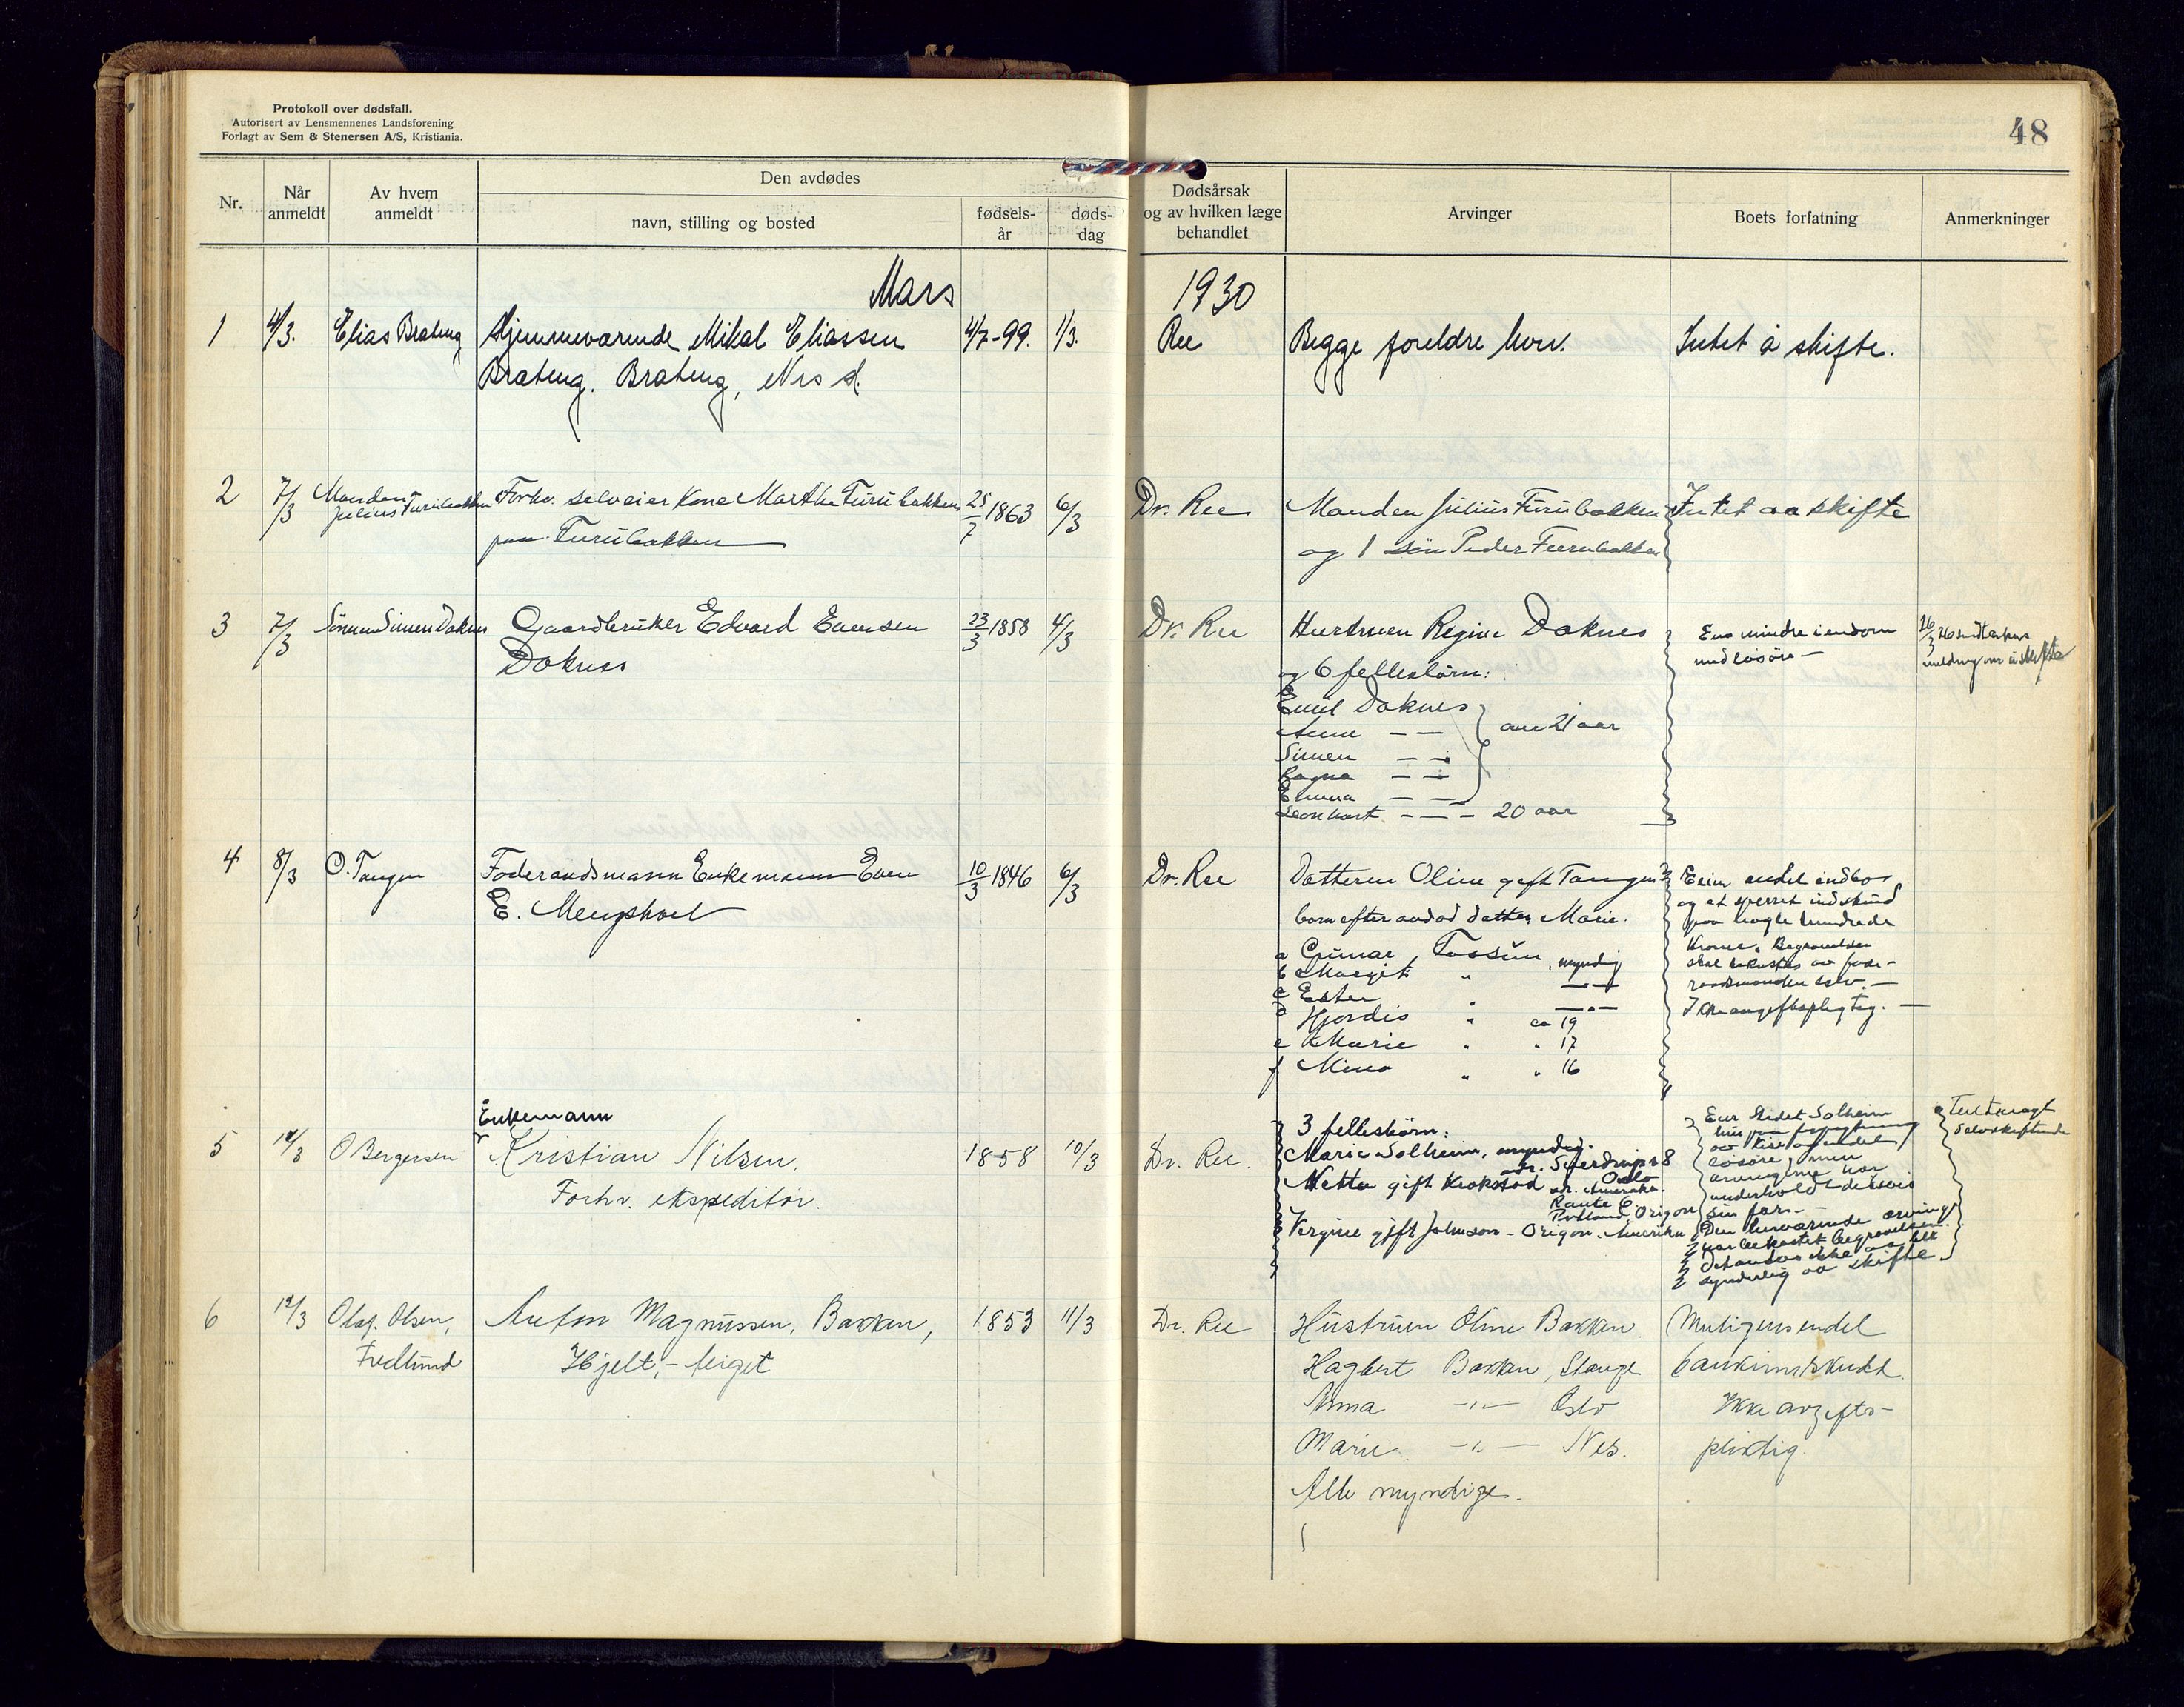 Protokoll over dødsfall.
Autorisert av Lensmennenes Landsforening
Forlagt av Sem & Stenersen A/S, Kristiania.
48
Nr.
Når anmeldt
Av hvem anmeldt
Den avdødes
navn, stilling og bosted
fødsels-år
døds-dag
Dødsårsak og av hvilken læge behandlet
Arvinger
Boets forfatning
Anmerkninger
Mars 1930
1 4/3. Elias Brateng Hjemmeværende Mikal Eliassen 4/7-99. 1/3. Ree Begge foreldre lever. Intet å skifte.
Brateng. Brateng, Nes s.
2 7/3 Manden Julius Furubakken Forhv. selveier Kone Marthe Furubakken 25/7 1863 6/3 Dr. Ree Manden Julius Furubakken Intet aa skifte
paa Furubakken og 1 søn Peder Furubakken
3 7/3 Sønnen Simen Doknes Gaardbruker Edvard Evensen 23/3 1858 4/3 Dr. Ree Hustruen Regine Doknes En mindre eiendom
Doknes og 6 fellesbørn: med løsøre —
meldeng om å skifte
Emil Doknes
Anne — — over 21 aar
Simen — —
Ragna — —
Emma — —
Leonhart — — — 20 aar
4 8/3 O. Tangen Foderaadsmann Enkemann Even 10/3 1846 6/3 Dr. Ree Datteren Oline gift Tangen
E. Mengshoel barn efter avdød datter Marie.
a Gunnar Fossum, myndig
b Margit " —"—
c Ester " —"—
d Hjørdis " ca 19
e Marie " " 17
f Mina " " 16
Eier endel indbo
og et sperret indskud
paa nogle hundrede
Kroner. Begravelsen
skal bekostes av fode-
raadsmanden selv. —
Ikke avgiftspligtig. —
5 12/3 O Bergersen Enkemann
Kristian Nilsen. 1858 10/3 Dr. Ree.
Forhv. ekspeditør.
3 fellesbørn:
Marie Solheim, myndig.
adr. Sverdrupsg 8
Oslo
Netta gift Krokstad adr. Amerika.
Raute 6.
Portland, Origon
Vergine gift Johnson - Origon. Amerika
Eier Stedet Solheim
løsøre, men
arvingerne har
underholdt delsvis
sin far. —
Den herværende arving
har bekostet begravelsen.
synderlig aa skifte
6 12/3 Olaf Olsen, Anton Magnussen, Bakken, 1853 11/3 Dr. Ree Hustruen Oline Bakken. Muligens endel
Fredlund Hjelt,- leiget Hagbert Bakken, Stange bankinnskudd.
Anna —"— Oslo Ikke avgifts-
Marie —"— Nes. pliktig.
Alle myndige.